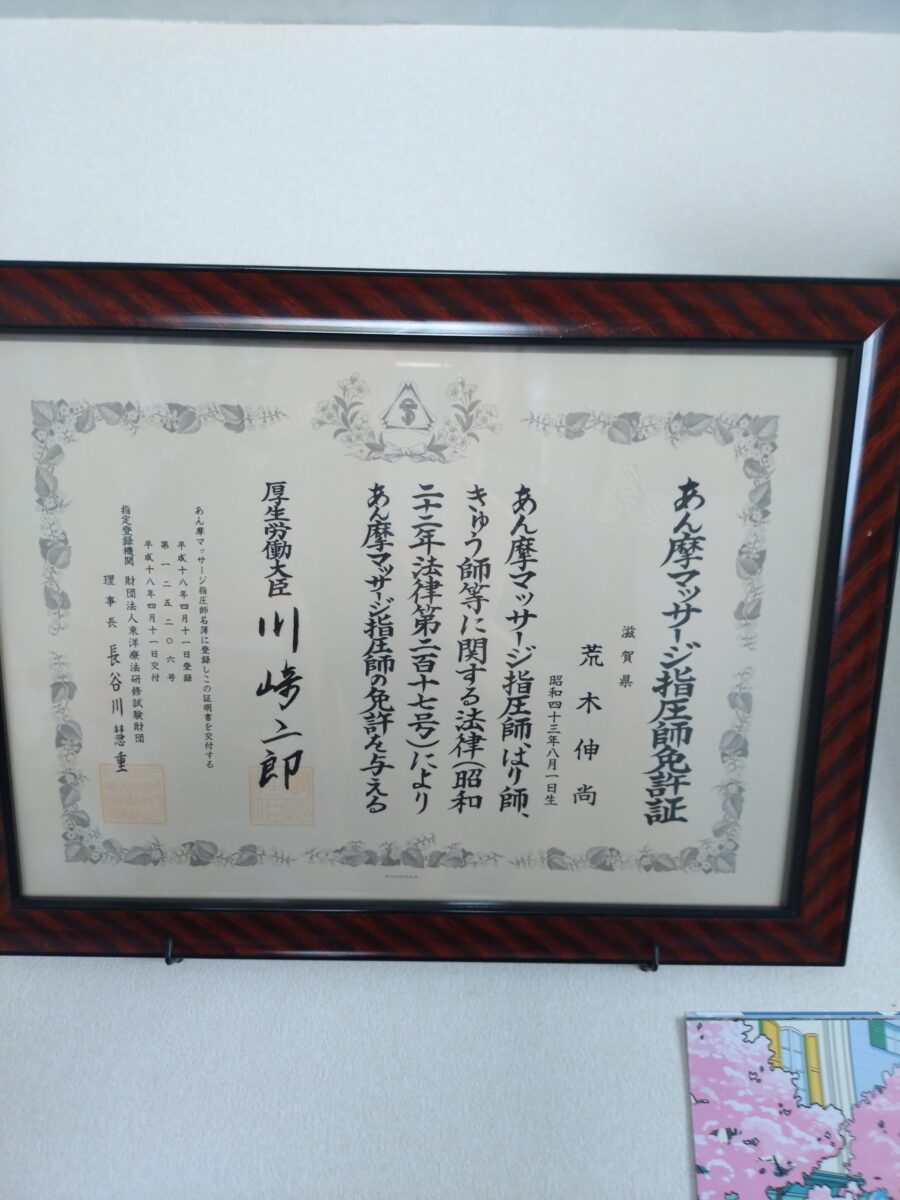 あん摩マッサージ指圧師免許証
滋賀県
荒木伸尚
昭和四十三年八月一日生
あん摩マッサージ指圧師、はり師、
きゅう師等に関する法律(昭和
二十二年法律第二百十七号)により
あん摩マッサージ指圧師の免許を与える
厚生労働大臣 川崎二郎
あん摩マッサージ指圧師名簿に登録しこの証明書を交付する
平成十八年四月十一日登録
第一二五二〇六号
平成十八年四月十一日交付
指定登録機関 財団法人東洋療法研修試験財団
理事長 長谷川慧重